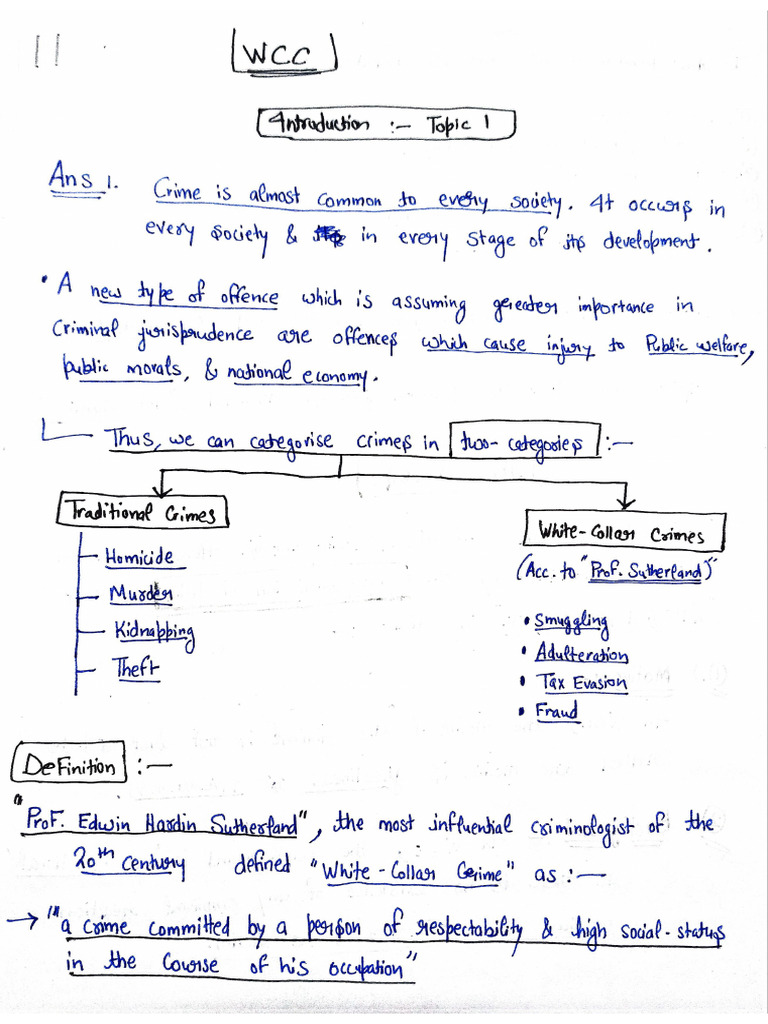 11
WCC
Introduction :- Topic 1
Ans 1. Crime is almost common to every society. It occurs in
every society & in every stage of its development.
• A new type of offence which is assuming gereater importance in
Criminal jurisprudence are offences which cause injury to Public welfare,
public morals, & national economy.
Thus, we can categorise crimes in two-categories :-
Traditional Crimes
White-Collar Crimes
(Acc. to "Prof. Sutherland")
Homicide
Murder
Kidnapping
Theft
• Smuggling
• Adulteration
• Tax Evasion
• Fraud
Definition :-
"Prof. Edwin Hardin Sutherland", the most influential criminologist of the
20th Century defined "White-Collar Crime" as :-
→ "a crime committed by a person of respectability & high social-status
in the Course of his occupation"